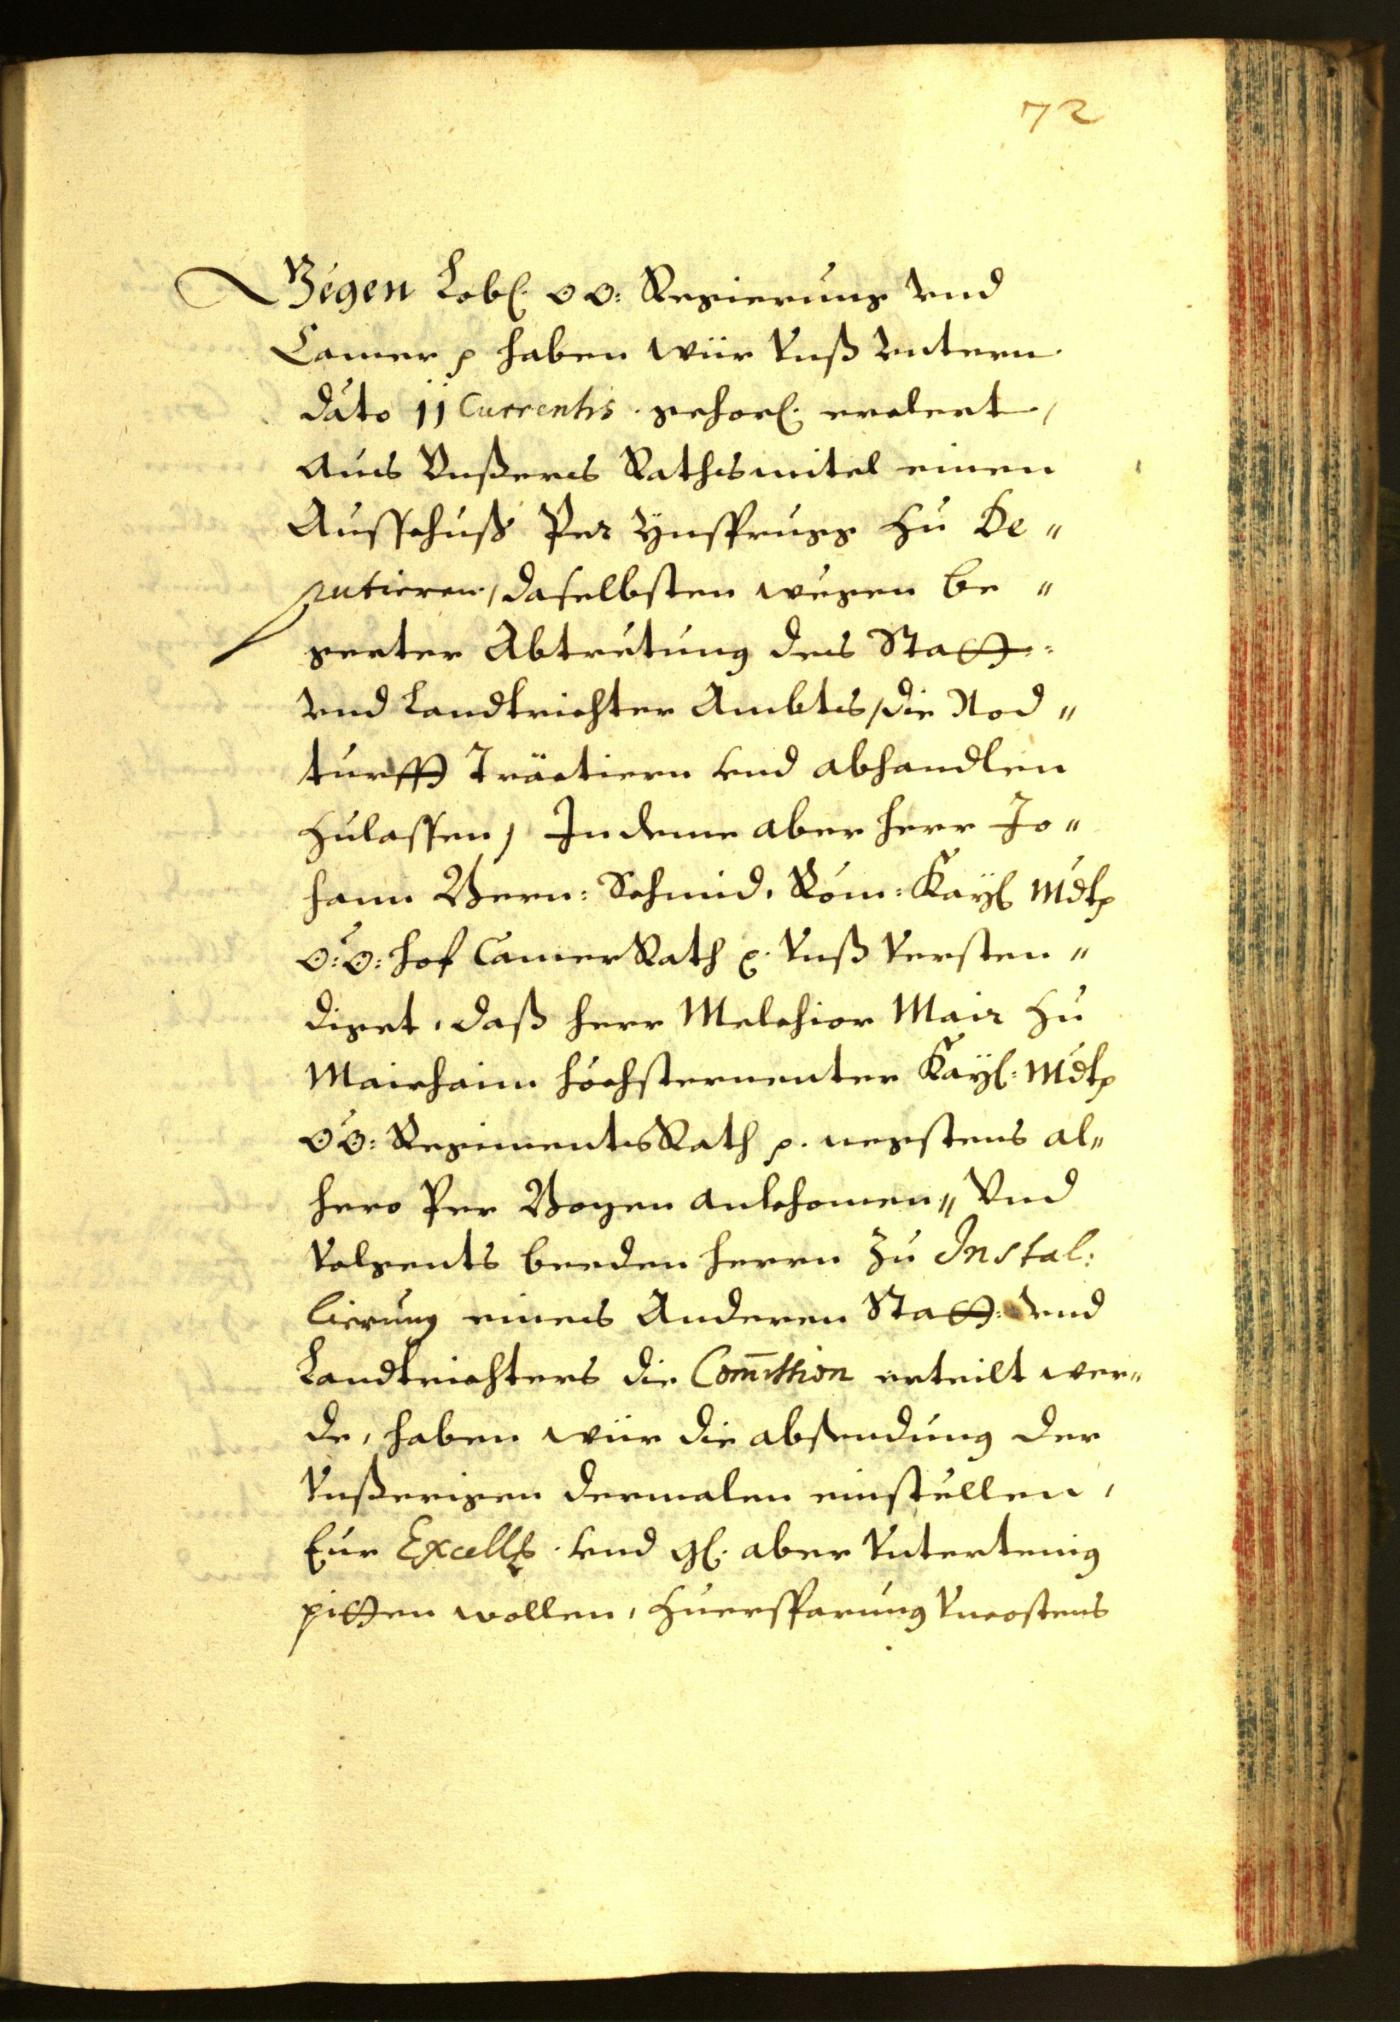 72
Gegen Lobl. OÖ: Regierung vnd
Camer p haben wür Vnß vntern
dato 11 Currentis gehorl. erclert,
Aus Vnßers Rathsmitel einen
Ausschuß Per Ynsprugg zu De„
putieren, daselbsten wegen be„
gerter Abtrëtung des Statt:
vnd Landtrichter Ambts, die Nod„
turfft Träctiern vnd abhandlen
zulassen, Indeme aber herr Jo„
hann Bern: Schmid, Röm: Kayl Mdt p
O:Ö: hof Camer Rath p. Vnß Versten„
diget, daß herr Melchior Mair zu
Mairhaim höchsternenter Kayl: Mdt p
OÖ: Regiments Rath p. negstens al„
hero Per Bozen ankhomen„ Vnd
Volgents beeden herrn zu Instal:
lierung eines Anderen Statt: vnd
Landtrichters die Com̄ission erteilt wer„
de, haben wür die absendung der
Vnßerigen dermalen einstëllen,
Eur Excellz. vnd gl. aber Vntertenig
pitten wollen, zuersparung Vncostens